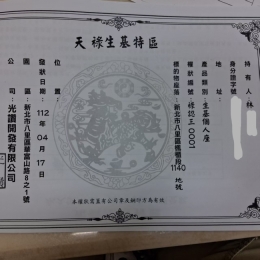 天祿生基特區
持有人：林
身分證字號：
地址：
產品類別：生基個人座
權狀編號：祿認三0001
標的物座落：新北市八里區舊城段1140地號
位置：
發狀日期：112年04月17日
園區：新北市八里區華富山路8之1號
公司：光讚開發有限公司
本權狀需蓋有公司章及鋼印方為有效